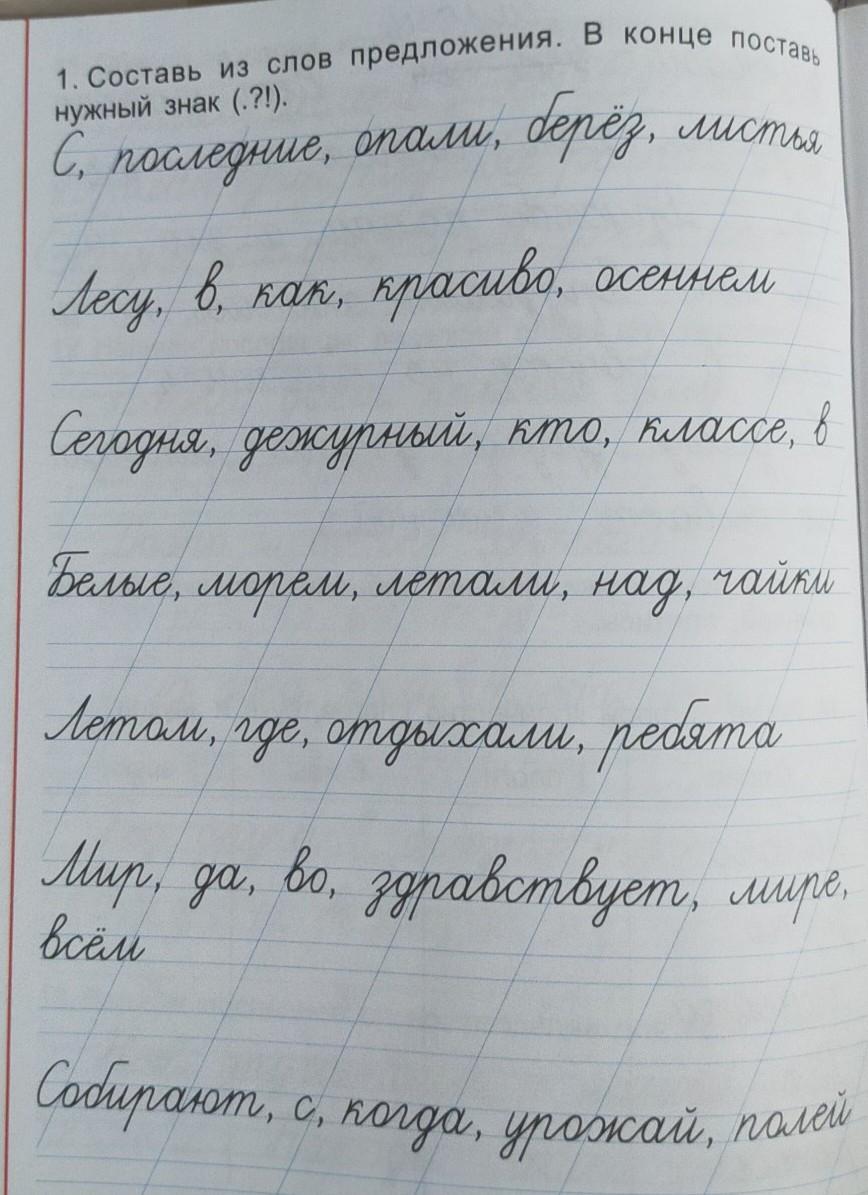 1. Составь из слов предложения. В конце поставь
нужный знак (.?!).
С, последние, опали, берёз, листья
Лесу, в, как, красиво, осеннем
Сегодня, дежурный, кто, классе, в
Белые, морем, летали, над, чайки
Летом, где, отдыхали, ребята
Мир, да, во, здравствует, мире,
всём
Собирают, с, когда, урожай, полей